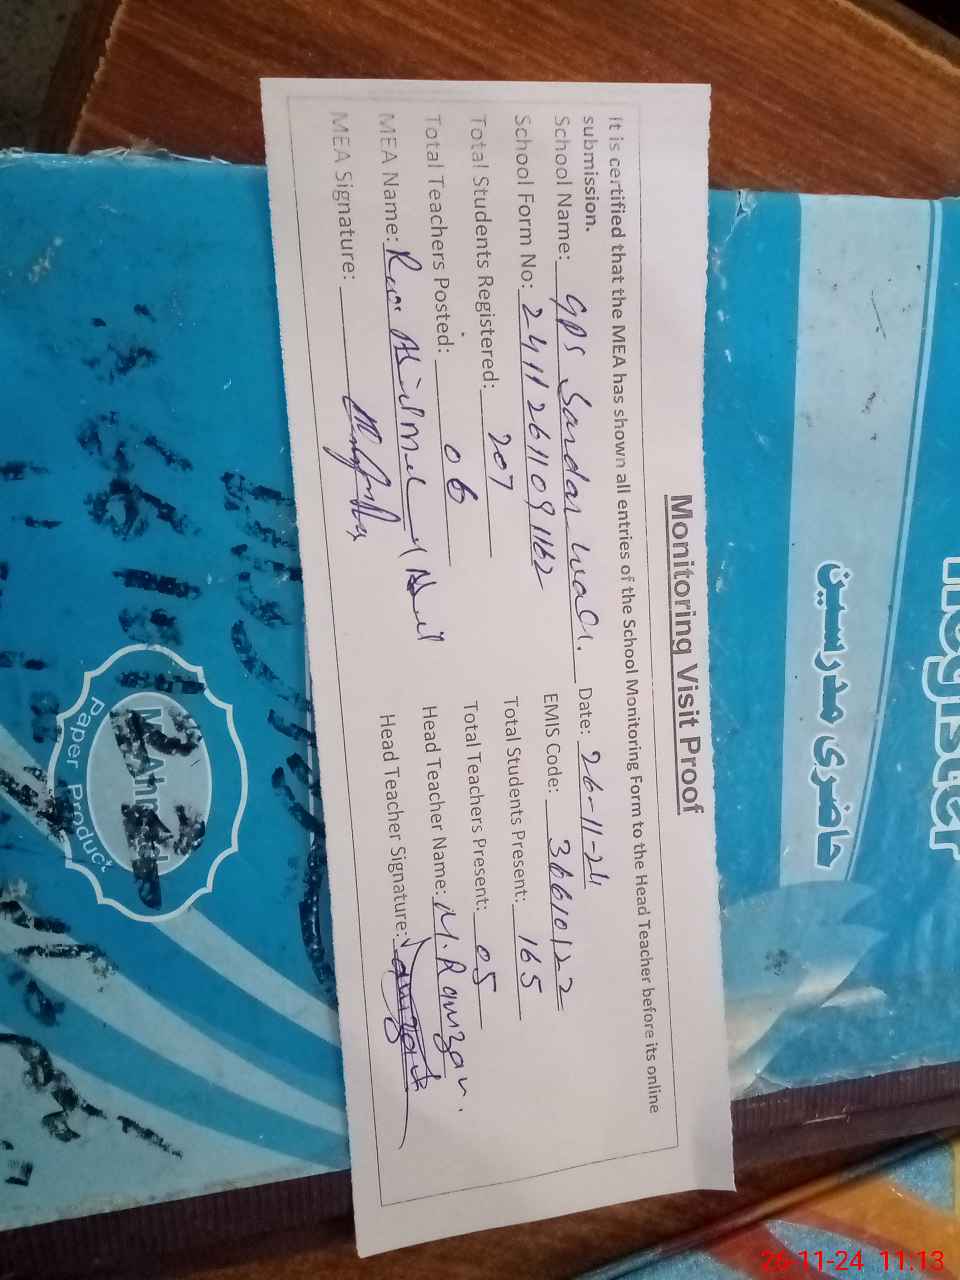 Monitoring Visit Proof
It is certified that the MEA has shown all entries of the School Monitoring Form to the Head Teacher before its online
submission.
School Name: GPS Sandar wali. Date: 26-11-24
School Form No: 24112611091162 EMIS Code: 36610122
Total Students Registered: 207 Total Students Present: 165
Total Teachers Posted: 06 Total Teachers Present: 05
MEA Name: Head Teacher Name: M. Ramzan.
MEA Signature: Head Teacher Signature: Ramzan
Register
حاضری مدرسین
Paper Product
26-11-24 11:13